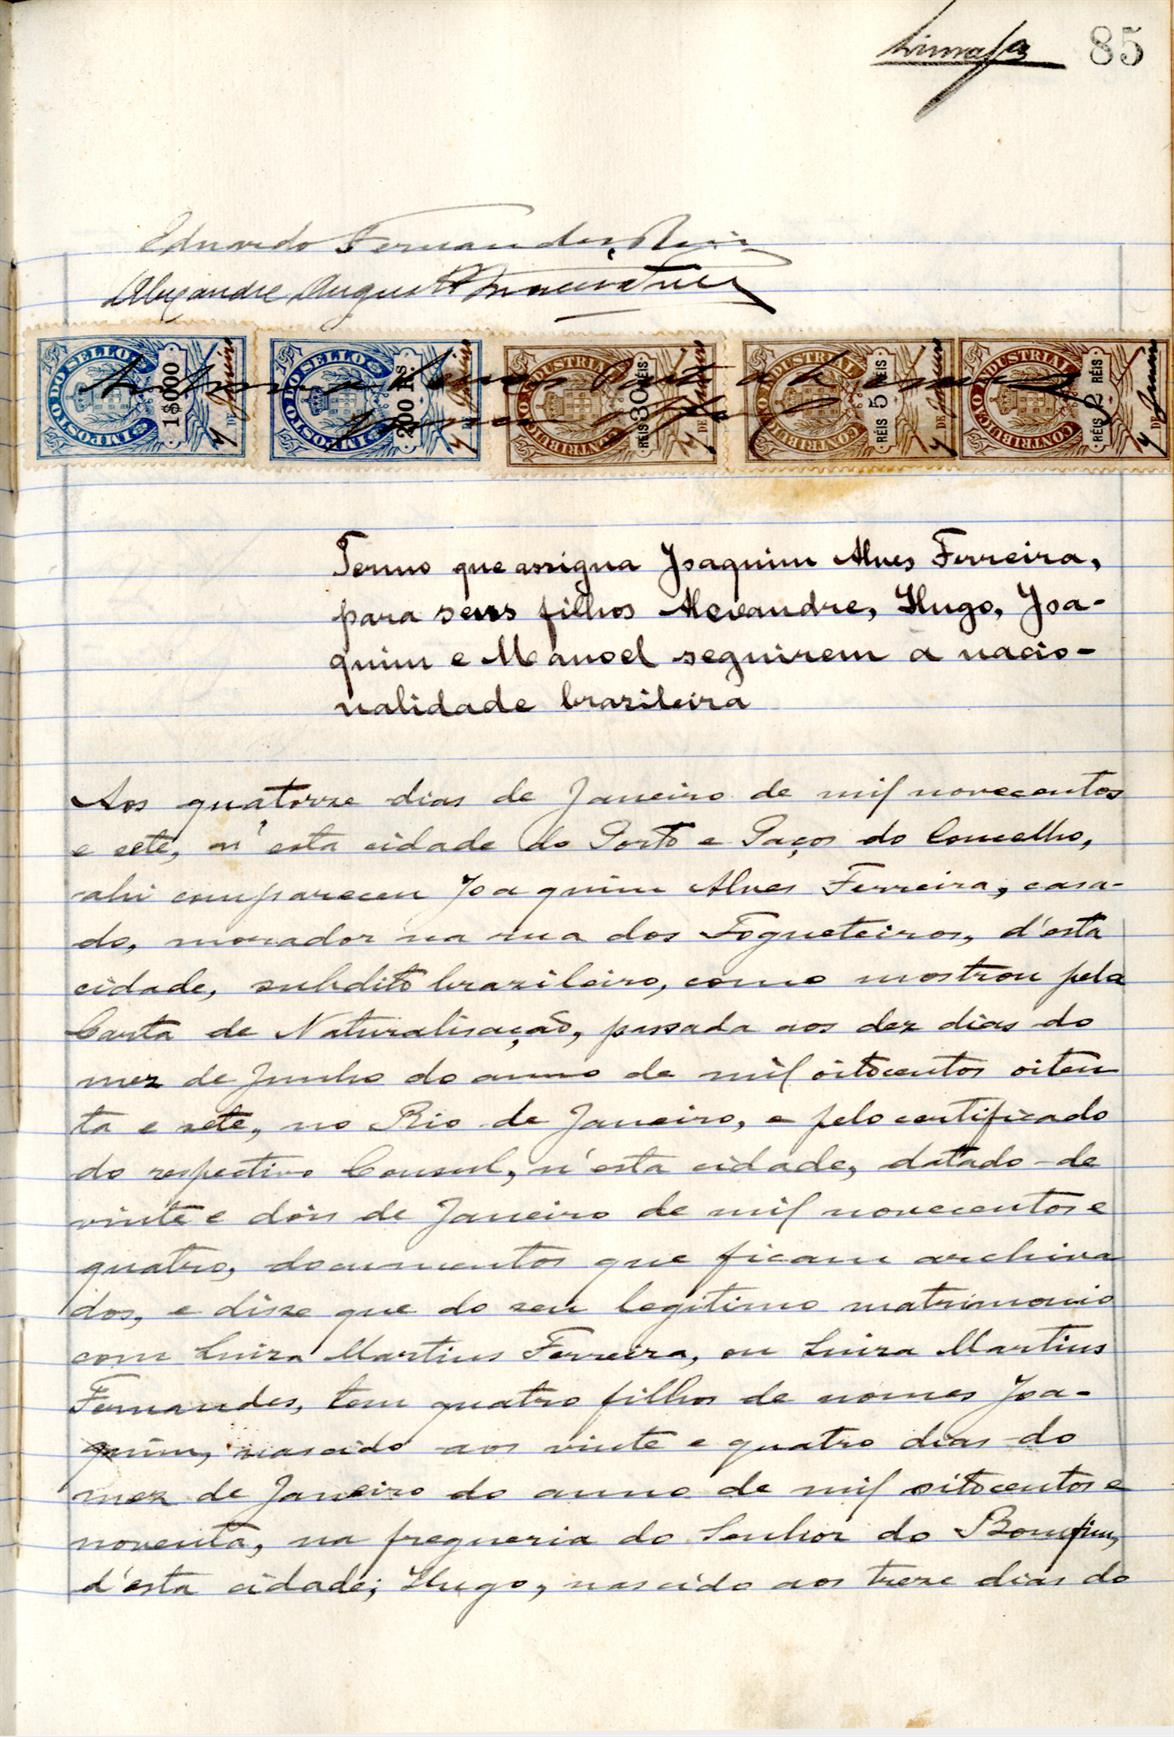 85
Eduardo Fernandes
Alexandre Augusto
IMPOSTO DO SELLO 1$000
IMPOSTO DO SELLO 200 R.S
CONTRIBUIÇÃO INDUSTRIAL RÉIS 30 RÉIS
CONTRIBUIÇÃO INDUSTRIAL RÉIS 5 RÉIS
CONTRIBUIÇÃO INDUSTRIAL RÉIS 2 RÉIS
Termo que assigna Joaquim Alves Ferreira,
para seus filhos Alexandre, Hugo, Joa-
quim e Manoel seguirem a nacio-
nalidade brazileira
Aos quatorze dias de Janeiro de mil novecentos
e sete, n'esta cidade do Porto e Paços do Concelho,
ahi compareceu Joaquim Alves Ferreira, casa-
do, morador na rua dos Fogueteiros, d'esta
cidade, subdito brazileiro, como mostrou pela
Carta de Naturalisação, passada aos dez dias do
mez de Junho do anno de mil oitocentos oiten
ta e sete, no Rio de Janeiro, e pelo certificado
do respectivo Consul, n'esta cidade, datado de
vinte e dois de Janeiro de mil novecentos e
quatro, documentos que ficam archiva
dos, e disse que do seu legitimo matrimonio
com Luiza Martins Ferreira, ou Luiza Martins
Fernandes, tem quatro filhos de nomes Joa-
quim, nascido aos vinte e quatro dias do
mez de Janeiro do anno de mil oitocentos e
noventa, na freguezia do Senhor do Bomfim,
d'esta cidade; Hugo, nascido aos treze dias do